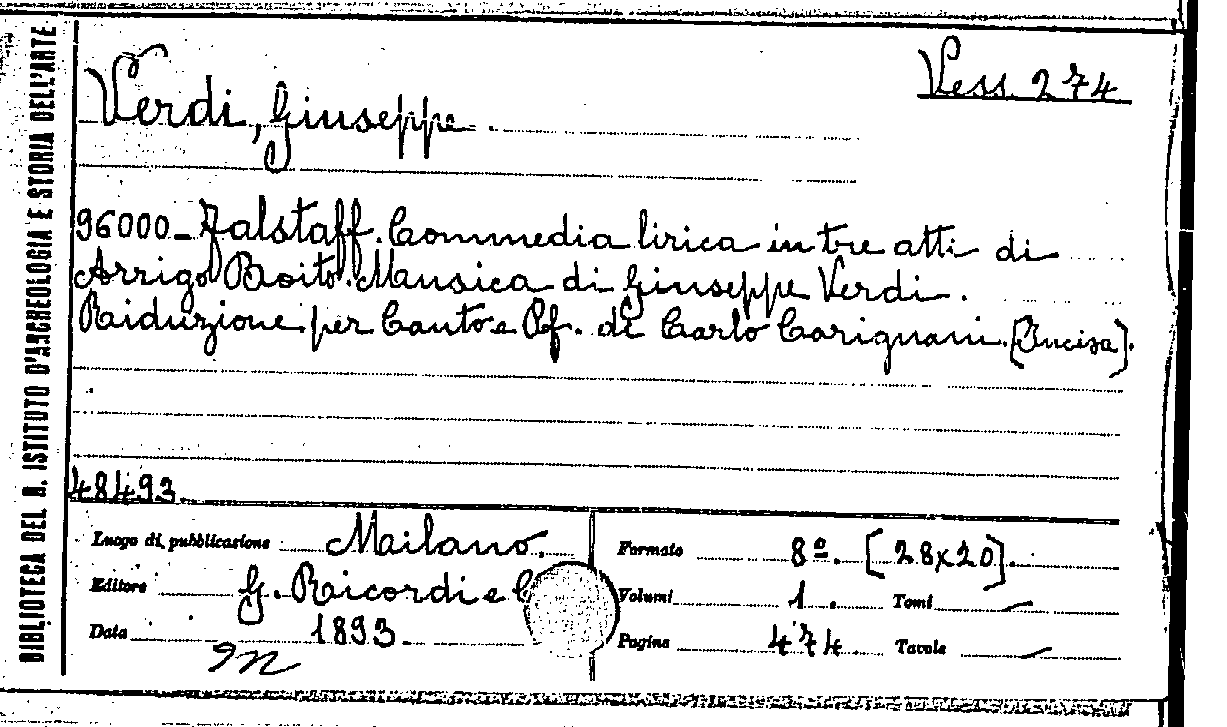 BIBLIOTECA DEL R. ISTITUTO D'ARCHEOLOGIA E STORIA DELL'ARTE
Vess. 274
Verdi, Giuseppe
96000 - Falstaff. Commedia lirica in tre atti di
Arrigo Boito. Musica di Giuseppe Verdi.
Riduzione per Canto e Pf. di Carlo Carignani. [Incisa].
48493.
Luogo di pubblicazione Milano.
Editore G. Ricordi e C
Data 1893.
Formato 8º. [28x20].
Volumi 1. Tomi —
Pagine 474. Tavole —